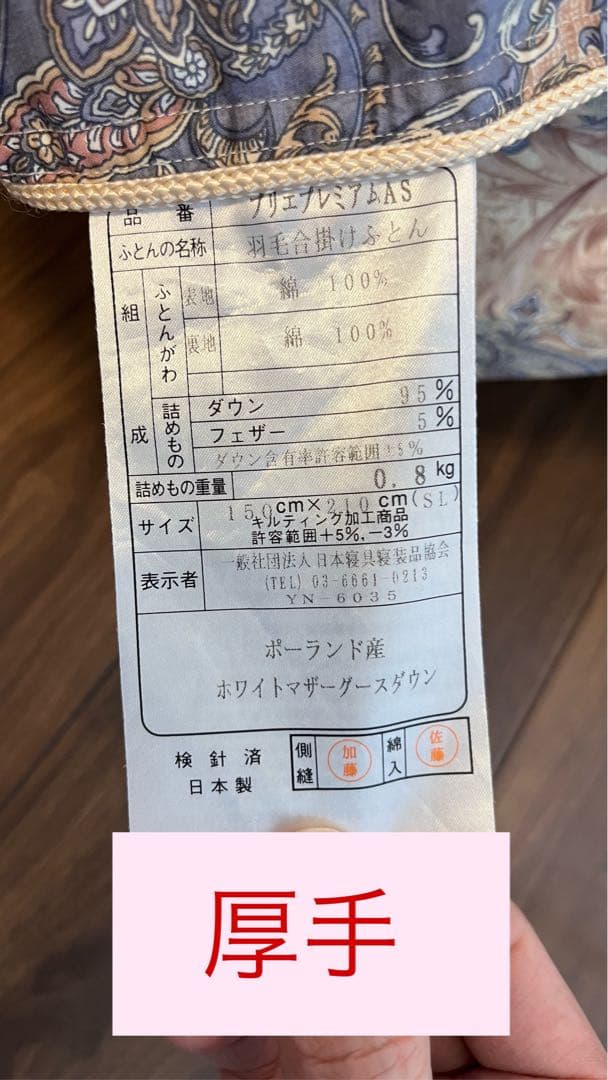 品番 プリエプレミアムAS
ふとんの名称 羽毛合掛けふとん
組成 ふとんがわ 表地 綿 100%
裏地 綿 100%
詰めもの ダウン 95%
フェザー 5%
ダウン含有率許容範囲±5%
詰めもの重量 0.8kg
サイズ 150cm×210cm(SL)
キルティング加工商品
許容範囲+5%,−3%
表示者 一般社団法人日本寝具寝装品協会
(TEL) 03-6661-0213
YN-6035
ポーランド産
ホワイトマザーグースダウン
検針済 側縫 加藤 綿入 佐藤
日本製
厚手